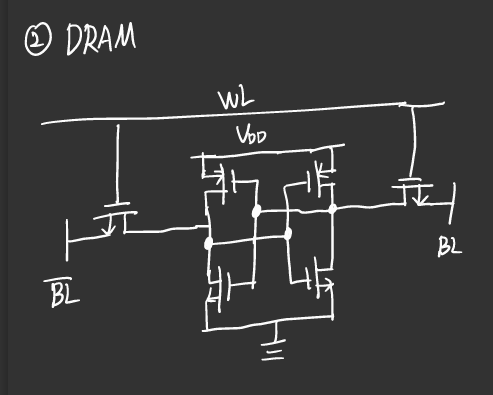 ② DRAM
WL
VDD
B̅L̅
BL